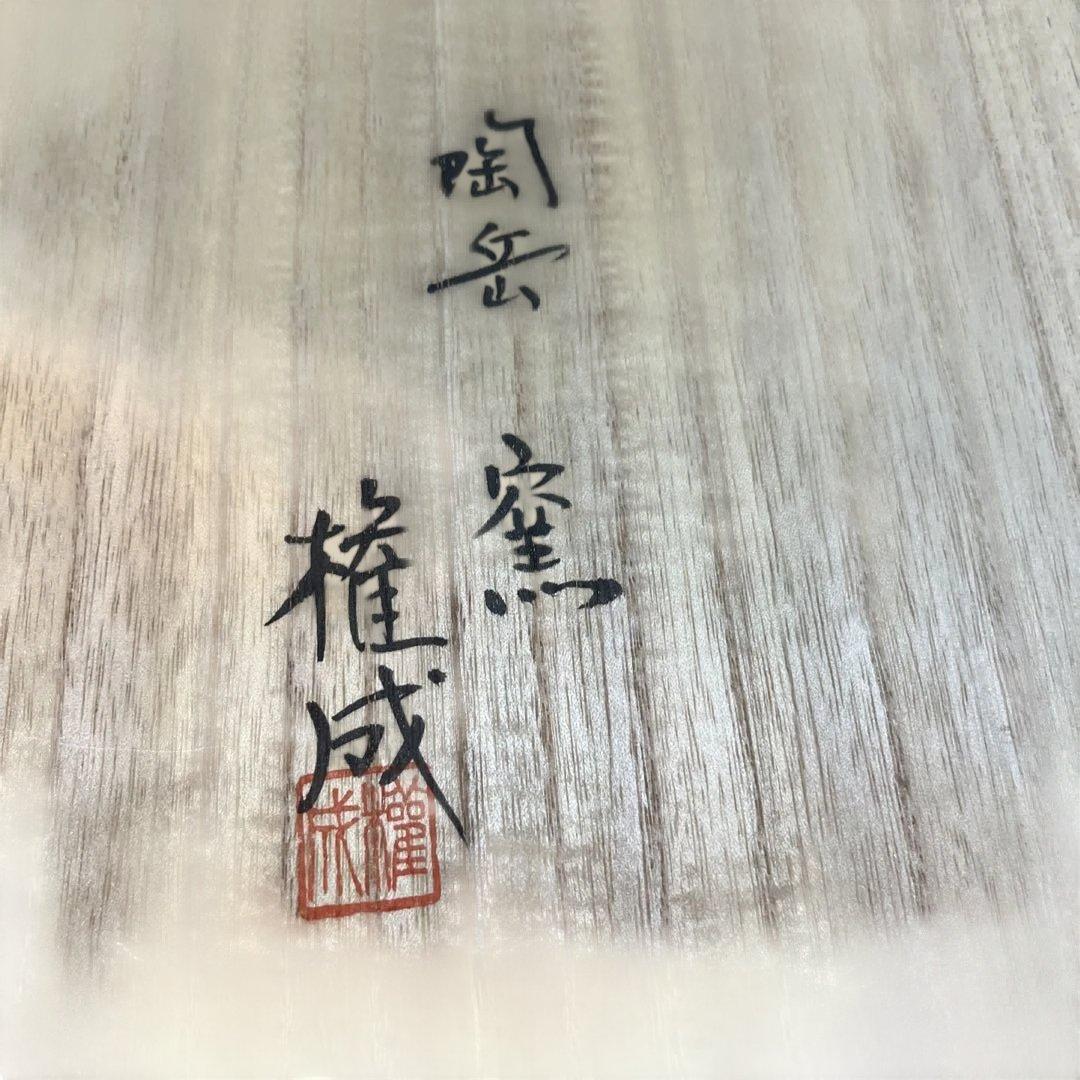 陶岳窯
権成
權成